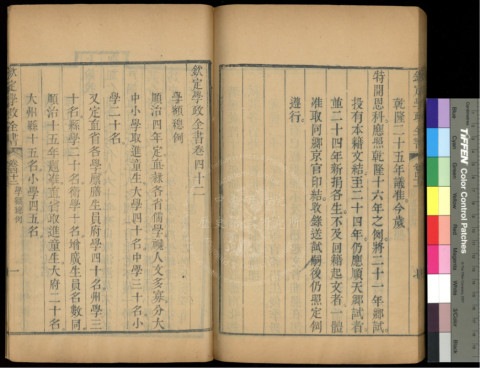 乾隆二十五年議准今歲
特開恩科應照乾隆十六年之例將二十一年鄉試
投有本籍文結至二十四年仍應順天鄉試者
並二十四年新捐各生不及回籍起文者一體
准取同鄉京官印結收錄送試嗣後仍照定例
遵行
欽定學政全書卷四十二
學額總例
順治四年定直隸各省儒學視人文多寡分大
中小學取進童生大學四十名中學三十名小
學二十名
又定直省各學廩膳生員府學四十名州學三
十名縣學二十名衛學十名增廣生員名數同
順治十五年題准直省取進童生大府二十名
大州縣十五名小學四五名
欽定學政全書
卷四十二
學額總例
一
TIFFEN Color Control Patches
Blue
Cyan
Green
Yellow
Red
Magenta
White
3/Color
Black